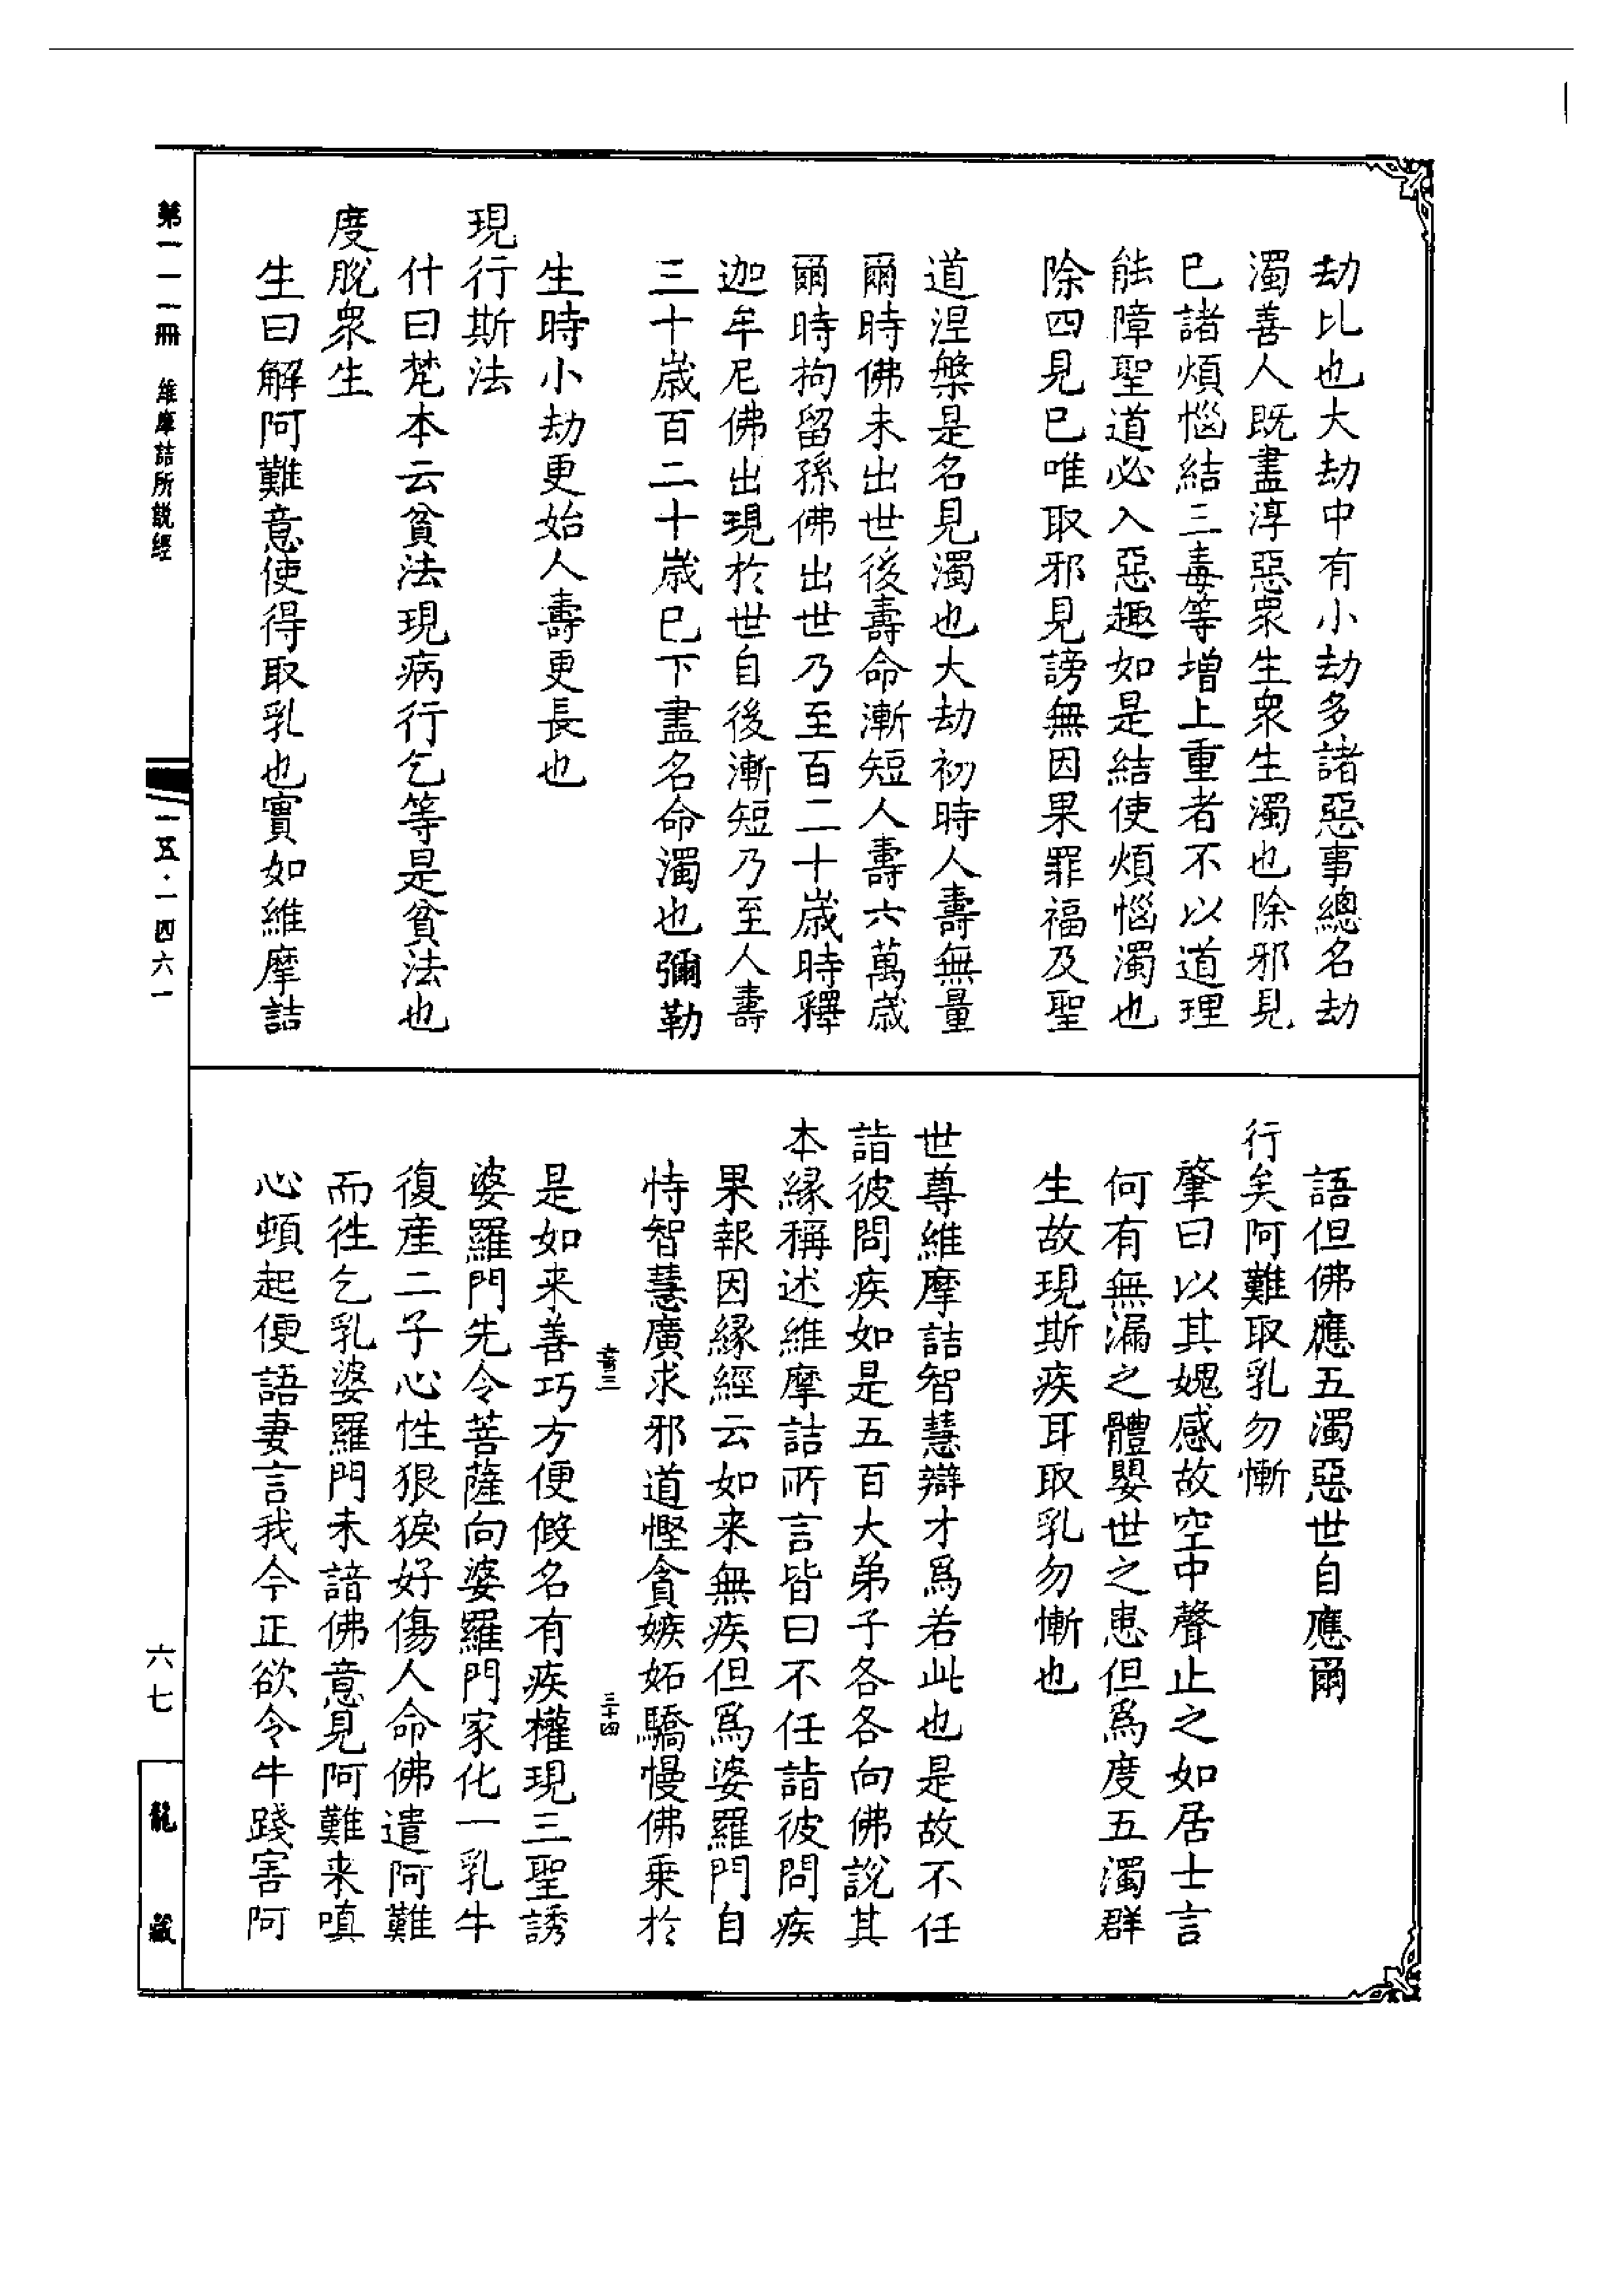 劫比也大劫中有小劫多諸惡事總名劫
濁善人既盡淳惡衆生衆生濁也除邪見
巳諸煩惱結三毒等增上重者不以道理
能障聖道必入惡趣如是結使煩惱濁也
除四見巳唯取邪見謗無因果罪福及聖
道涅槃是名見濁也大劫初時人壽無量
爾時佛未出世後壽命漸短人壽六萬歲
爾時拘留孫佛出世乃至百二十歲時釋
迦牟尼佛出現於世自後漸短乃至人壽
三十歲百二十歲巳下盡名命濁也彌勒
生時小劫更始人壽更長也
現行斯法
什曰梵本云貧法現病行乞等是貧法也
度脫衆生
生曰解阿難意使得取乳也實如維摩詰
語但佛應五濁惡世自應爾
行矣阿難取乳勿慚
肇曰以其媿感故空中聲止之如居士言
何有無漏之體嬰世之患但爲度五濁群
生故現斯疾耳取乳勿慚也
世尊維摩詰智慧辯才爲若此也是故不任
詣彼問疾如是五百大弟子各各向佛說其
本緣稱述維摩詰所言皆曰不任詣彼問疾
果報因緣經云如来無疾但爲婆羅門自
恃智慧廣求邪道慳貪嫉妬驕慢佛乗於
三十四
是如来善巧方便假名有疾權現三聖誘
婆羅門先令菩薩向婆羅門家化一乳牛
復產二子心性狠猰好傷人命佛遣阿難
而徃乞乳婆羅門未諳佛意見阿難来嗔
心頓起便語妻言我今正欲令牛踐害阿
第一一一冊 維摩詰所說經
一五·一四六一
六七
龍藏